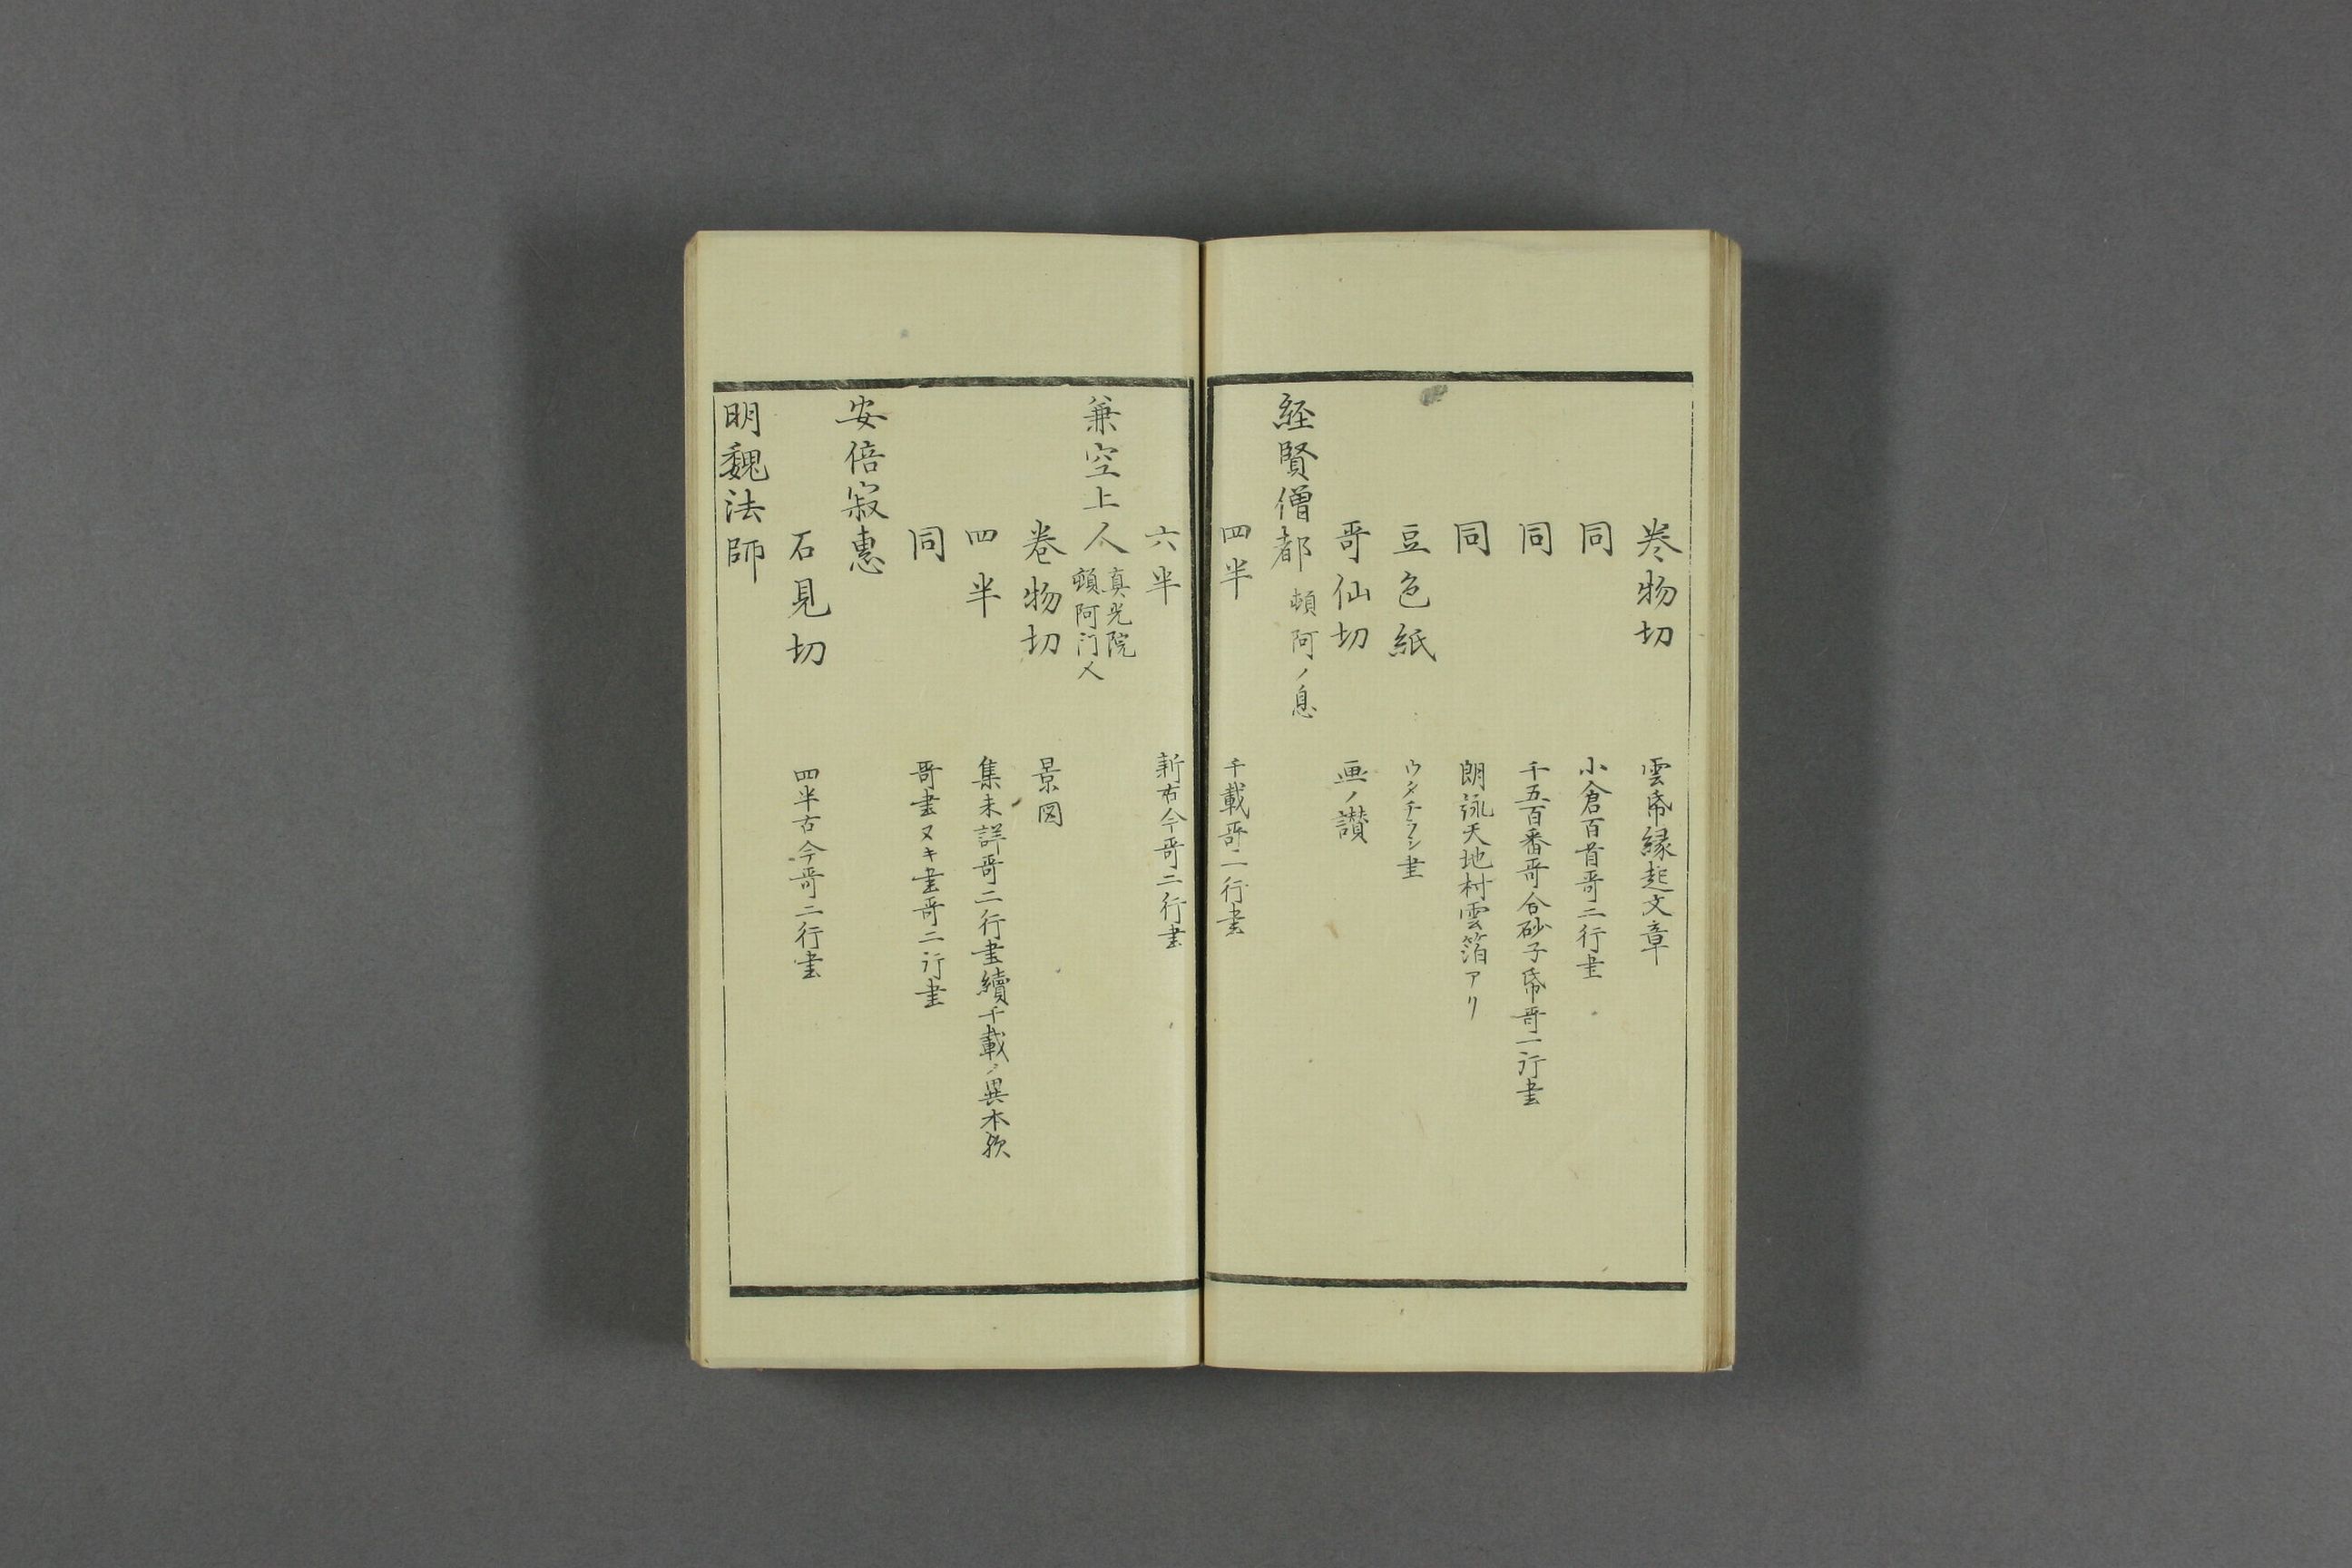 巻物切　雲帋縁起文章
同　小倉百首哥二行書
同　千五百番哥合砂子帋哥一行書
同　朗詠天地村雲箔アリ
豆色紙　ウタチラシ書
哥仙切　画ノ讃
経賢僧都　頓阿ノ息
四半　千載哥一行書
六半　新古今哥二行書
兼空上人　真光院
頓阿门人
巻物切　景図
四半　集未詳哥二行書續千載ノ異本歟
同　哥書ヌキ書哥二行書
安倍寂恵
石見切　四半古今哥二行書
明魏法師